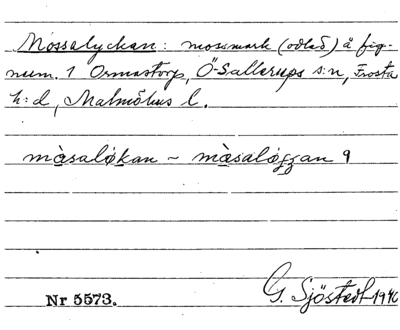 Mossalyckan: mossmark (odlad) å fig-
num. 1 Ormastorp, Ö-Sallerups s:n, Frosta
h:d, Malmöhus l.
màsaløkan ~ màsaløggan 9
Nr 5573. G. Sjöstedt 1940